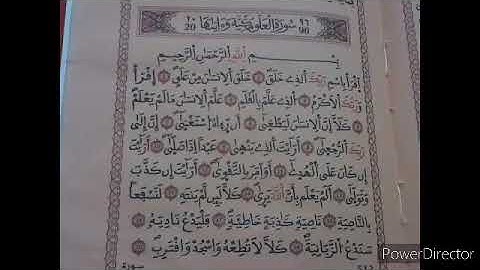 ٩٦ سورة العلق مكية وءاياتها ١٩
بِسْمِ اللَّهِ الرَّحْمَٰنِ الرَّحِيمِ
اقْرَأْ بِاسْمِ رَبِّكَ الَّذِي خَلَقَ ۝ خَلَقَ الْإِنسَانَ مِنْ عَلَقٍ ۝ اقْرَأْ
وَرَبُّكَ الْأَكْرَمُ ۝ الَّذِي عَلَّمَ بِالْقَلَمِ ۝ عَلَّمَ الْإِنسَانَ مَا لَمْ يَعْلَمْ
۝ كَلَّا إِنَّ الْإِنسَانَ لَيَطْغَىٰ ۝ أَن رَّءَاهُ اسْتَغْنَىٰ ۝ إِنَّ إِلَىٰ
رَبِّكَ الرُّجْعَىٰ ۝ أَرَأَيْتَ الَّذِي يَنْهَىٰ ۝ عَبْدًا إِذَا صَلَّىٰ ۝ أَرَأَيْتَ
إِن كَانَ عَلَى الْهُدَىٰ ۝ أَوْ أَمَرَ بِالتَّقْوَىٰ ۝ أَرَأَيْتَ إِن كَذَّبَ
وَتَوَلَّىٰ ۝ أَلَمْ يَعْلَم بِأَنَّ اللَّهَ يَرَىٰ ۝ كَلَّا لَئِن لَّمْ يَنتَهِ ۝ لَنَسْفَعًا
بِالنَّاصِيَةِ ۝ نَاصِيَةٍ كَاذِبَةٍ خَاطِئَةٍ ۝ فَلْيَدْعُ نَادِيَهُ ۝
سَنَدْعُ الزَّبَانِيَةَ ۝ كَلَّا لَا تُطِعْهُ وَاسْجُدْ وَاقْتَرِب ۝
سورة
PowerDirector